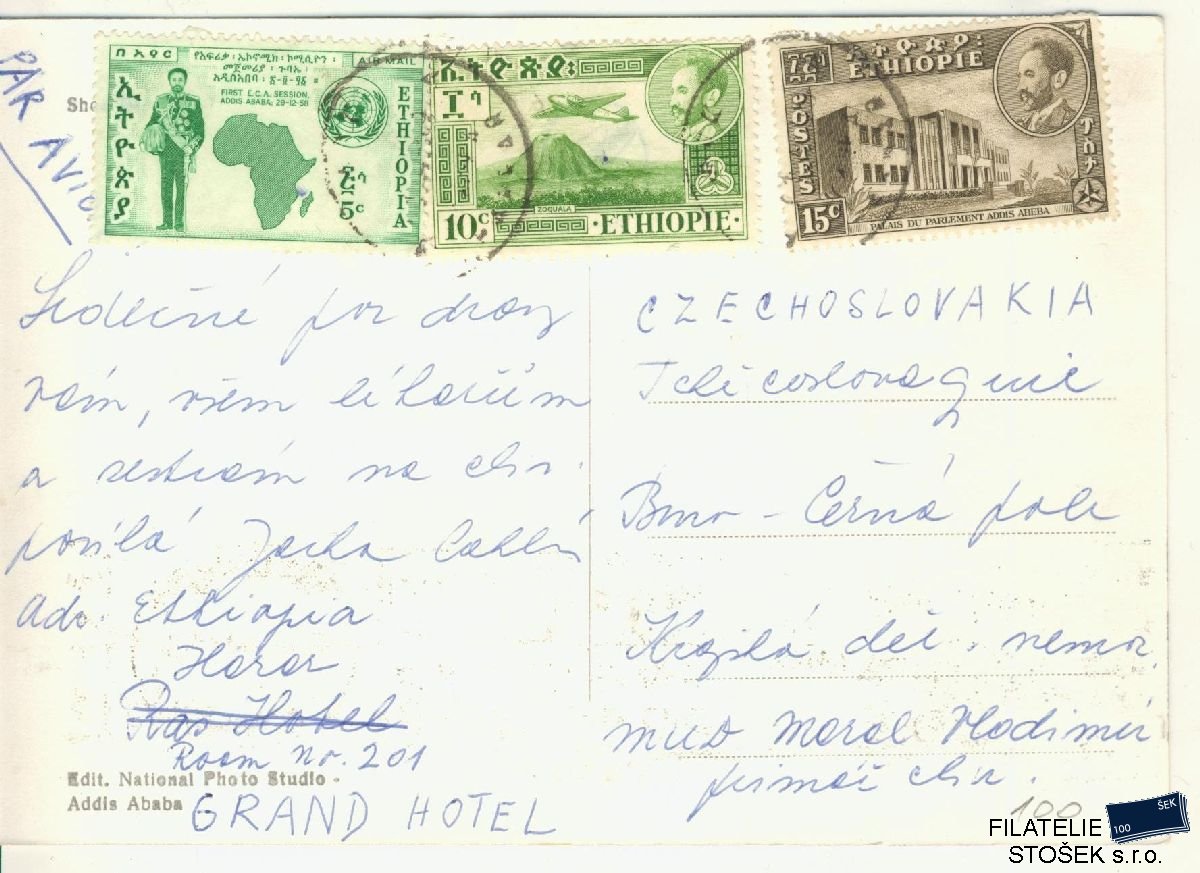 PAR
AVION
በ አየር
AIR MAIL
የአፍሪካ፡ ኢኮኖሚክ፡ ኮሚሲዮን፡
መጀመሪያ፡ ጉባኤ፡
FIRST E.C.A. SESSION,
ADDIS ABABA, 29-12-58
ኢትዮጵያ
ETHIOPIA
5c
ኢትዮጵያ፡
ZOQUALA
10c
·ETHIOPIE·
ኢትዮጵያ፡
ETHIOPIE
POSTES
ፖስታ
15c
PALAIS DU PARLEMENT ADDIS ABEBA
Srdečné pozdravy
vám, všem lékařům
a sestrám na chir.
posílá
Adr. Ethiopia
Harar
Ras Hotel
Room No. 201
GRAND HOTEL
Edit. National Photo Studio -
Addis Ababa
CZECHOSLOVAKIA
Tchécoslovaquie
Brno - Černá pole
Krajská dět. nemoc.
MUDr Moral Vladimír
primář chir.
100
100 ŠEK
FILATELIE
STOŠEK s.r.o.